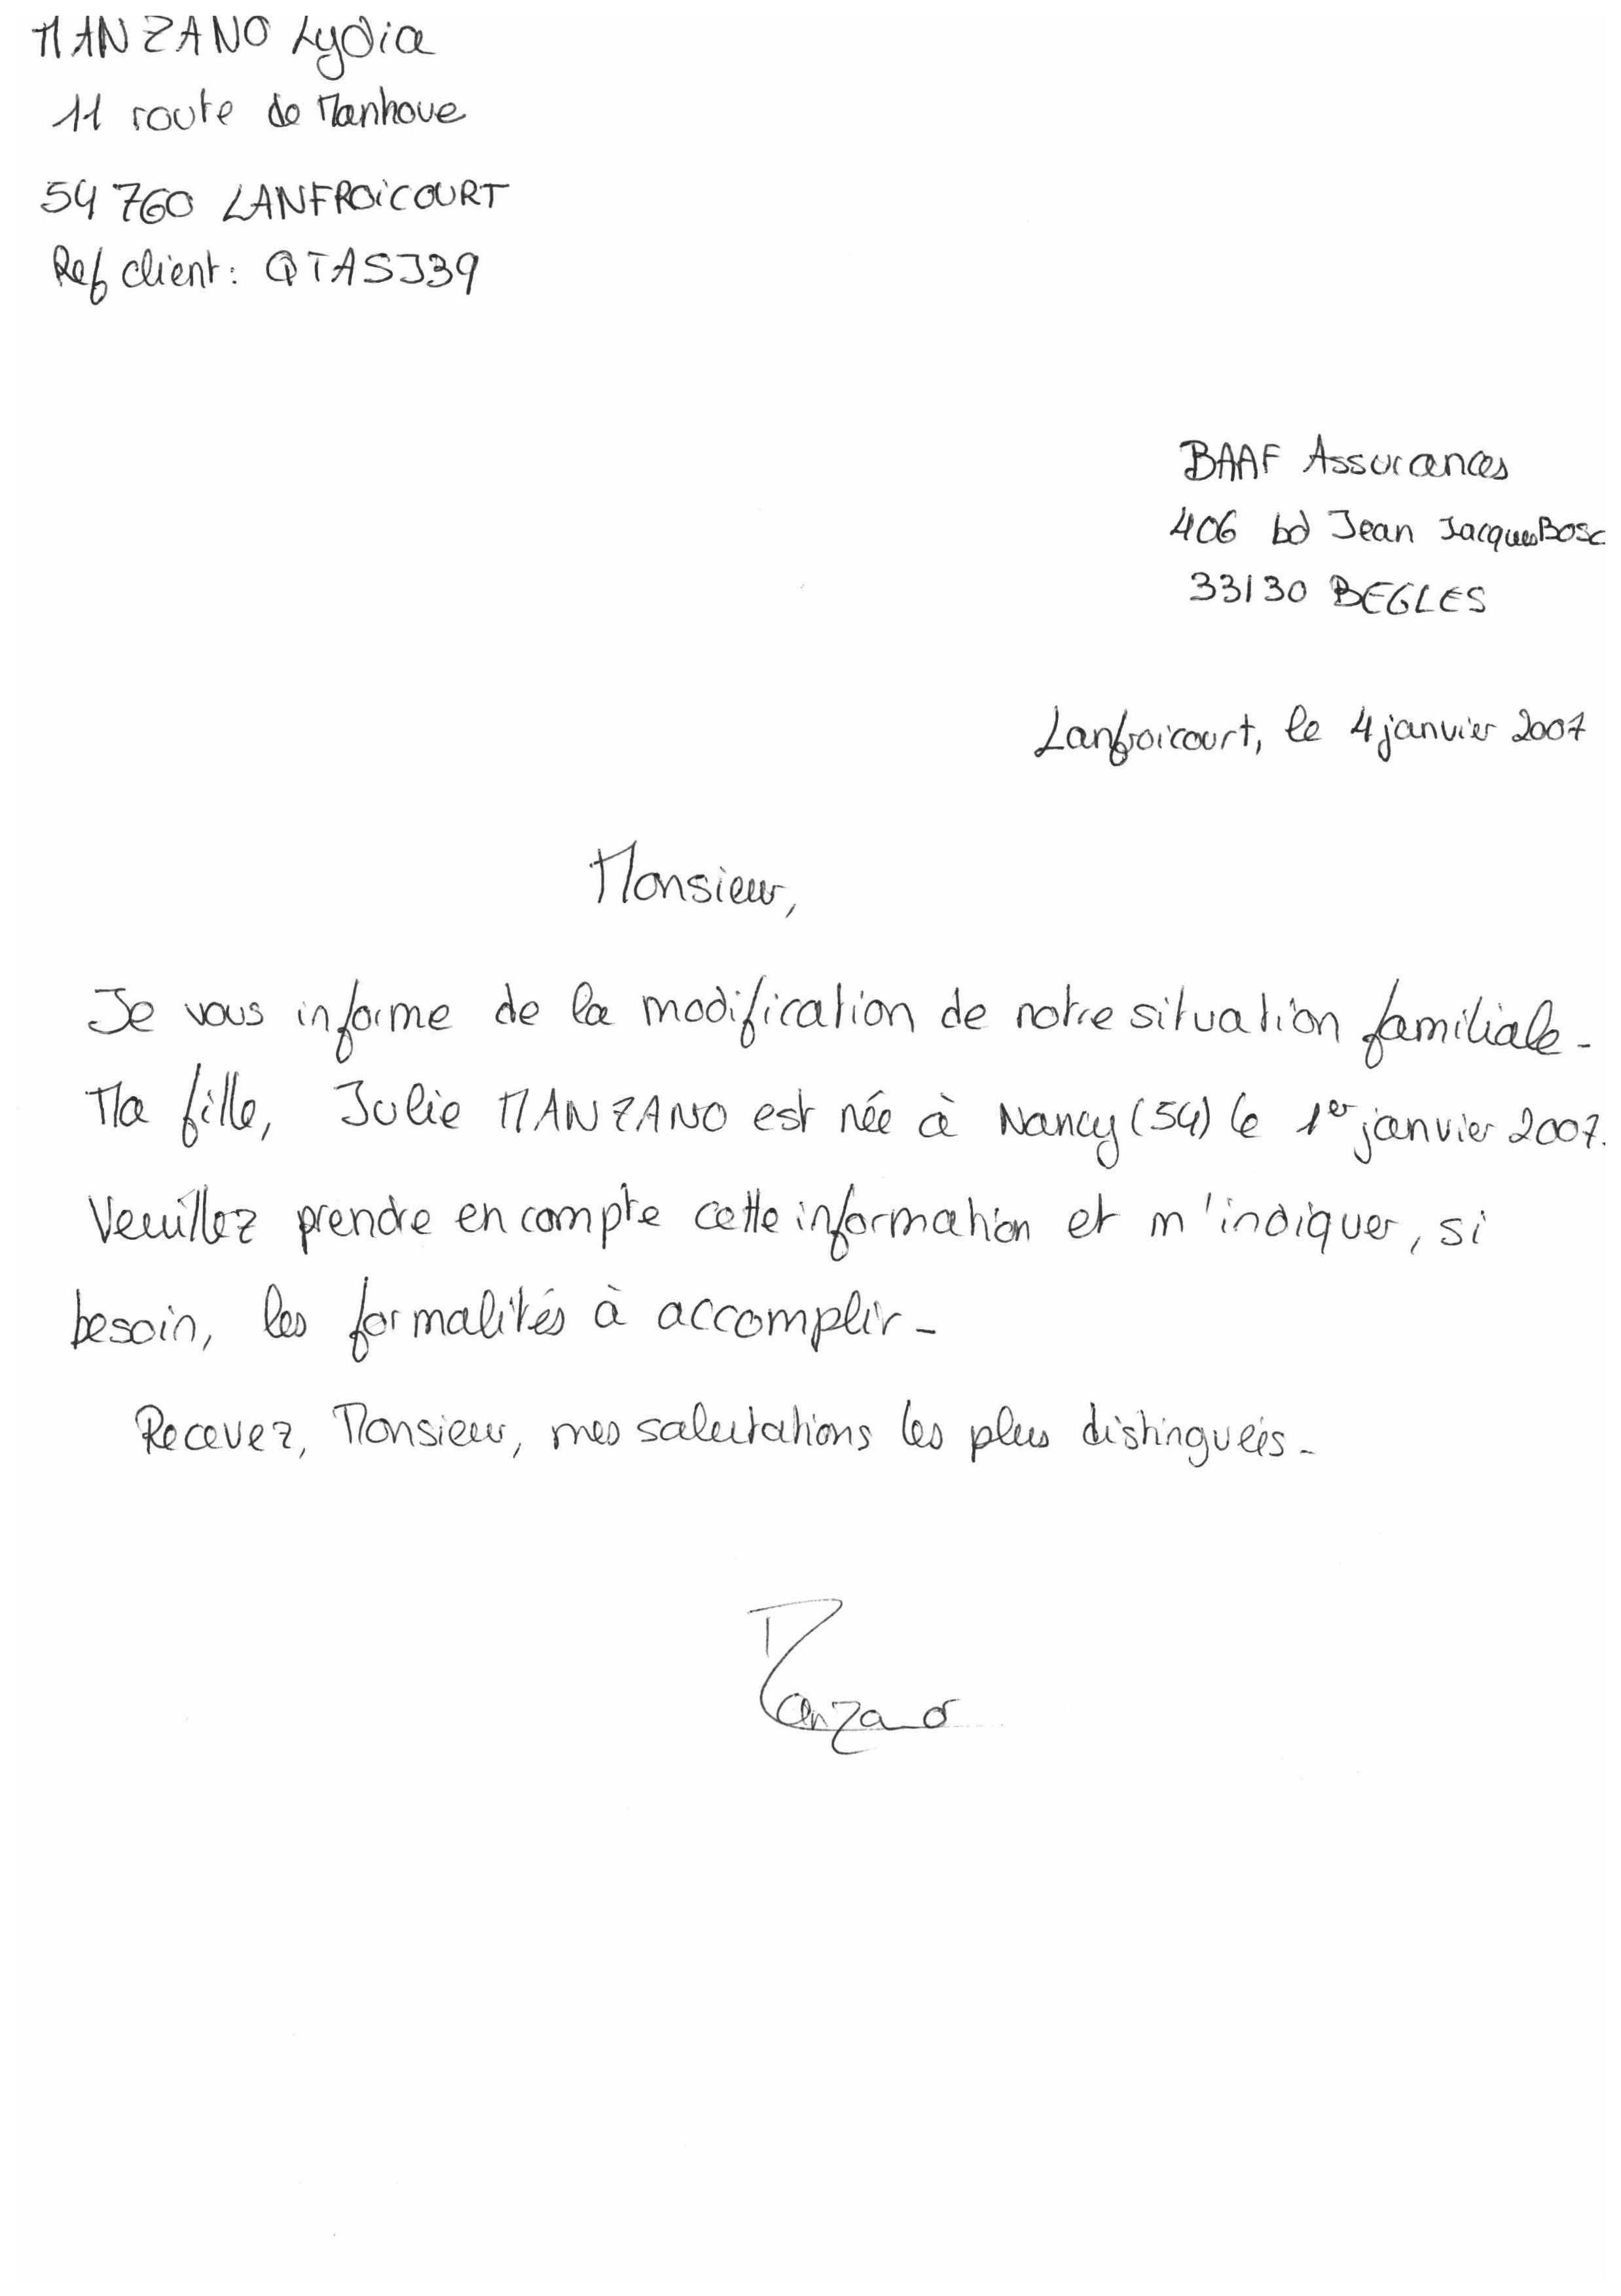 MANZANO Lydia
11 route de Manhoue
54 760 LANFROICOURT
Ref client : QTASJ39
BAAF Assurances
406 bd Jean Jacques Bosc
33130 BEGLES
Lanfroicourt, le 4 janvier 2007
Monsieur,
Je vous informe de la modification de notre situation familiale.
Ma fille, Julie MANZANO est née à Nancy (54) le 1er janvier 2007.
Veuillez prendre en compte cette information et m'indiquer, si
besoin, les formalités à accomplir.
Recevez, Monsieur, mes salutations les plus distinguées.
Manzano